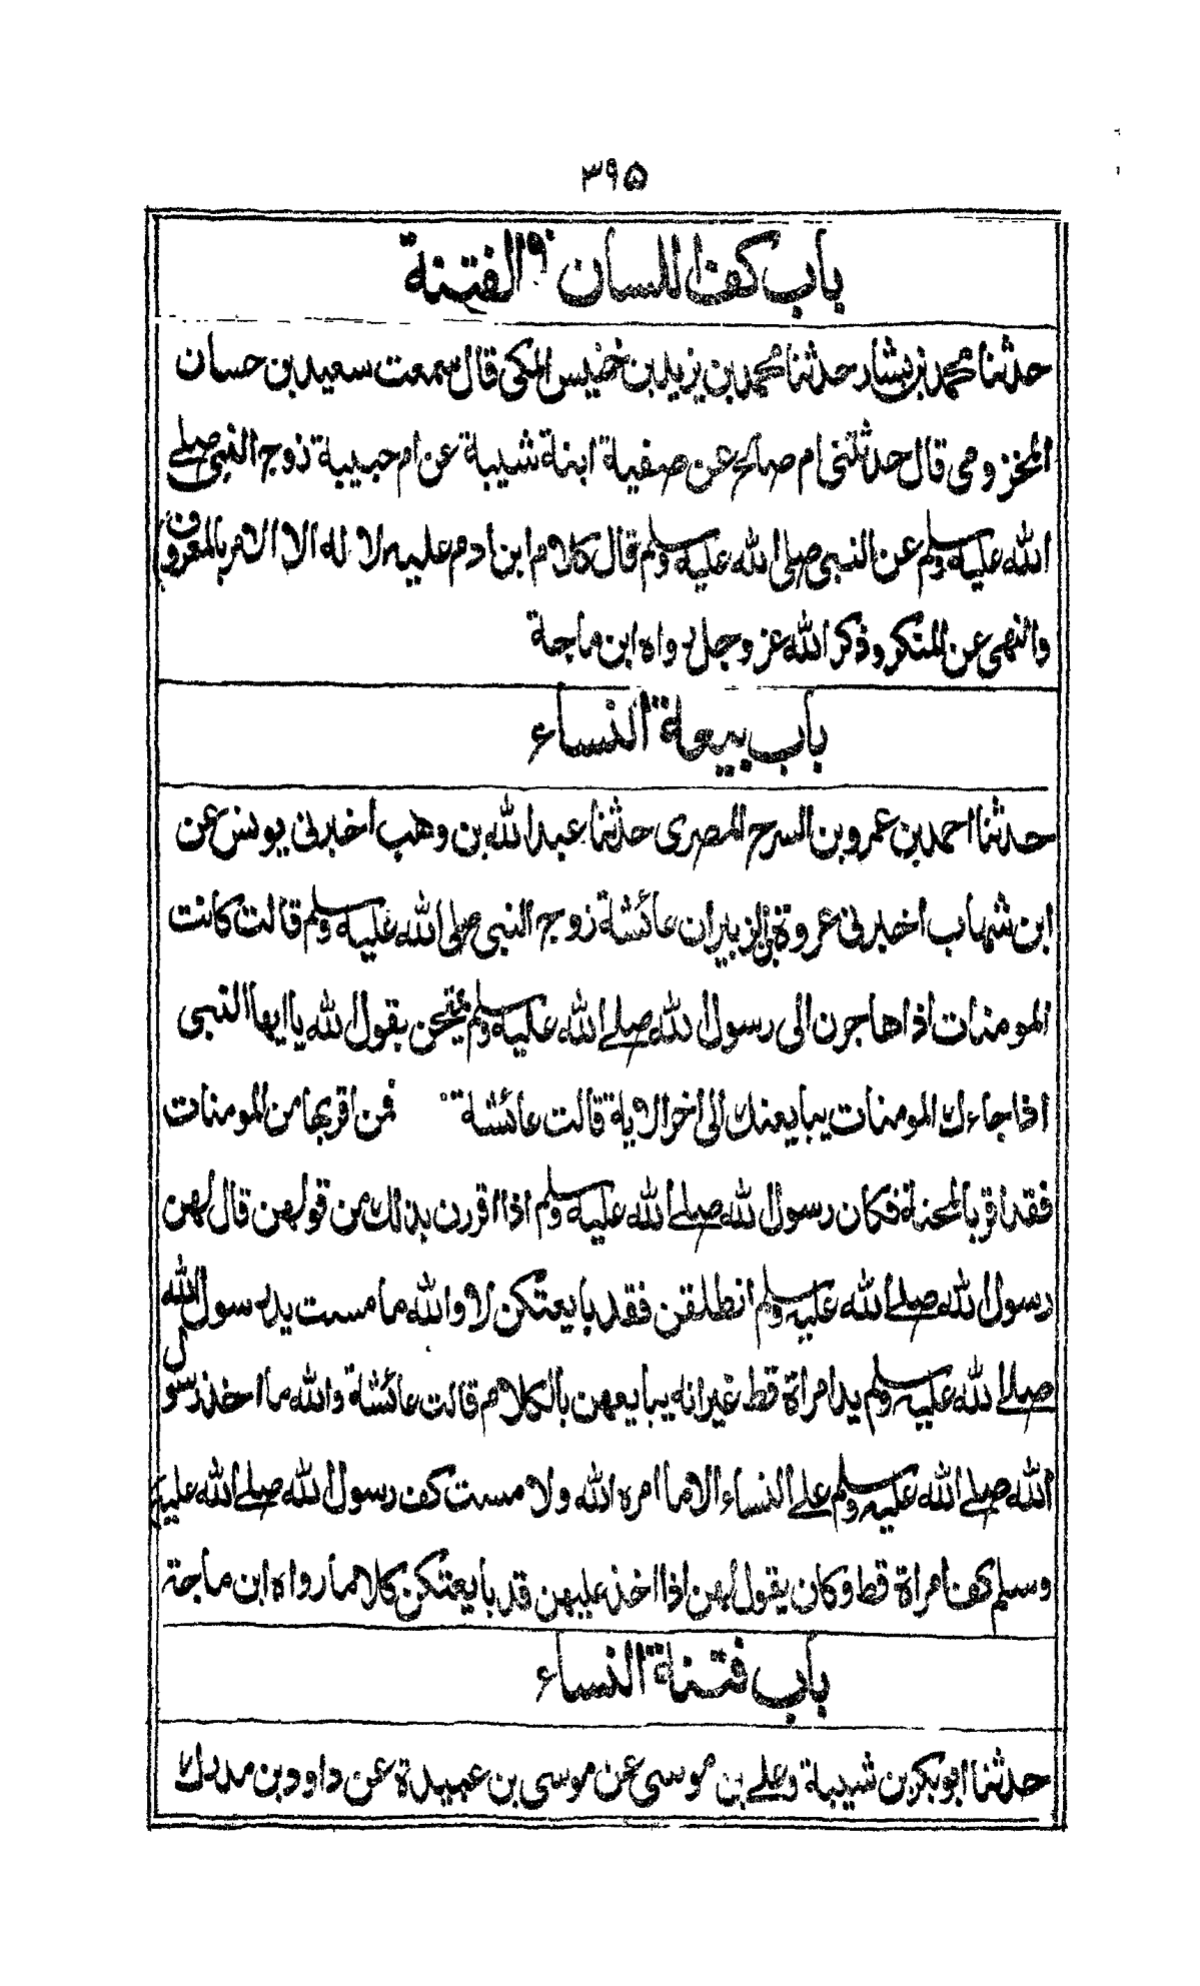 ٣٩۵
باب كف اللسان فى الفتنة
حدثنا محمد بن بشار حدثنا محمد بن يزيد بن خنيس المكى قال سمعت سعيد بن حسان
المخزومى قال حدثتنى ام صالح عن صفية ابنة شيبة عن ام حبيبة زوج النبى صلے
الله عليه وسلم عن النبى صلى الله عليه وسلم قال كلام ابن ادم عليه لا له الا الامر بالمعروف
والنهى عن المنكر وذكر الله عز وجل رواه ابن ماجة
باب بيعة النساء
حدثنا احمد بن عمرو بن السرح المصرى حدثنا عبد الله بن وهب اخبرنى يونس عن
ابن شهاب اخبرنى عروة بن الزبير ان عائشة زوج النبى صلى الله عليه وسلم قالت كانت
المومنات اذا هاجرن الى رسول الله صلے الله عليه وسلم يمتحن بقول الله يا ايها النبى
اذا جاءك المومنات يبايعنك الى اخر الاية قالت عائشة فمن اقر بها من المومنات
فقد اقر بالمحنة فكان رسول الله صلے الله عليه وسلم اذا اقررن بذلك من قولهن قال لهن
رسول الله صلے الله عليه وسلم انطلقن فقد بايعتكن لا والله ما مست يد رسول الله
صلے الله عليه وسلم يد امراة قط غير انه يبايعهن بالكلام قالت عائشة والله ما اخذ رسول
الله صلے الله عليه وسلم علے النساء الا ما امره الله ولا مست كف رسول الله صلے الله عليه
وسلم كف امراة قط وكان يقول لهن اذا اخذ عليهن قد بايعتكن كلاما رواه ابن ماجة
باب فتنة النساء
حدثنا ابو بكر بن شيبة وعلے بن موسى عن موسى بن عبيدة عن داود بن مدرك